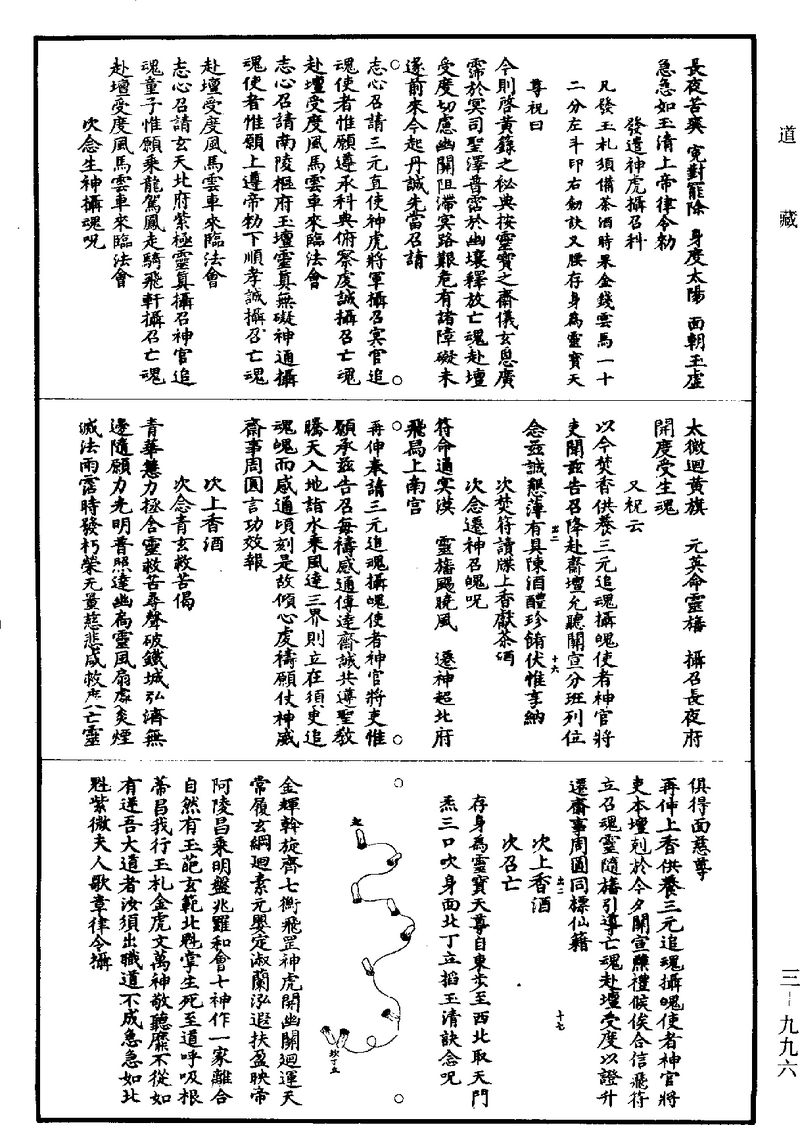 道藏
長夜苦爽　寃對罷除　身度太陽　面朝玉虛
急急如玉清上帝律令勑
發遣神虎攝召科
凡發玉札須備茶酒時果金錢雲馬一十
二分左斗印右劒訣又腰存身為靈寶天
尊祝曰
今則啓黃籙之秘典按靈寶之齋儀玄恩廣
霈於冥司聖澤普霑於幽壤釋放亡魂赴壇
受度切慮幽關阻滯冥路艱危有諸障礙未
遂前來今起丹誠先當召請
志心召請三元直使神虎將軍攝召冥官追
魂使者惟願遵承科典俯察虔誠攝召亡魂
赴壇受度風馬雲車來臨法會
志心召請南陵樞府玉壇靈真無礙神通攝
魂使者惟願上遵帝勑下順孝誠攝召亡魂
赴壇受度風馬雲車來臨法會
志心召請玄天北府紫極靈真攝召神官追
魂童子惟願乘龍駕鳳走騎飛軒攝召亡魂
赴壇受度風馬雲車來臨法會
次念生神攝魂呪
太微迴黃旗　元英命靈旛　攝召長夜府
開度受生魂
又祝云
以今焚香供養三元追魂攝魄使者神官將
吏聞兹告召降赴齋壇允聽關宣分班列位
念兹誠懇薄有具陳酒醴珍餚伏惟享納
出二　十六
次焚符讀牒上香獻茶酒
次念遷神召魄呪
符命通冥漠　靈旛颺曉風　遷神超北府
飛舄上南宮
再伸奉請三元追魂攝魄使者神官將吏惟
願承兹告召每禱感通傳達齋誠共遵聖敎
騰天入地詣水乘風達三界則立在須臾追
魂魄而感通頃刻是故傾心虔禱願仗神威
齋事周圓言功效報
次上香酒
次念青玄救苦偈
青華㷀力極含靈救苦尋聲破鐵城弘濟無
邊隨願力光明普照達幽扃靈風扇處炎煙
滅法雨霑時發朽榮无量慈悲咸救度八亡靈
俱得面慈尊
再伸上香供養三元追魂攝魄使者神官將
吏本壇剋於今夕關宣醮禮候俟合信飛符
立召魂靈隨旛引導亡魂赴壇受度以證升
遷齋事周圓同標仙籍
出二　十七
次上香酒
次召亡
存身為靈寶天尊自東步至西北取天門
炁三口吹身面北丁立搯玉清訣念呪
坎丁立
金輝斡旋齊七衡飛罡神虎開幽關迴運天
常履玄綱迴素元嬰定淑蘭泓遐扶盈映帝
阿陵昌乘明盤兆羅和會七神作一家離合
自然有玉葩玄範北魁掌生死至道呼吸根
蒂昌我行玉札金虎文萬神敬聽靡不從如
有逆吾大道者汝須出職道不成急急如北
魁紫微夫人歌章律令攝
三一九九六